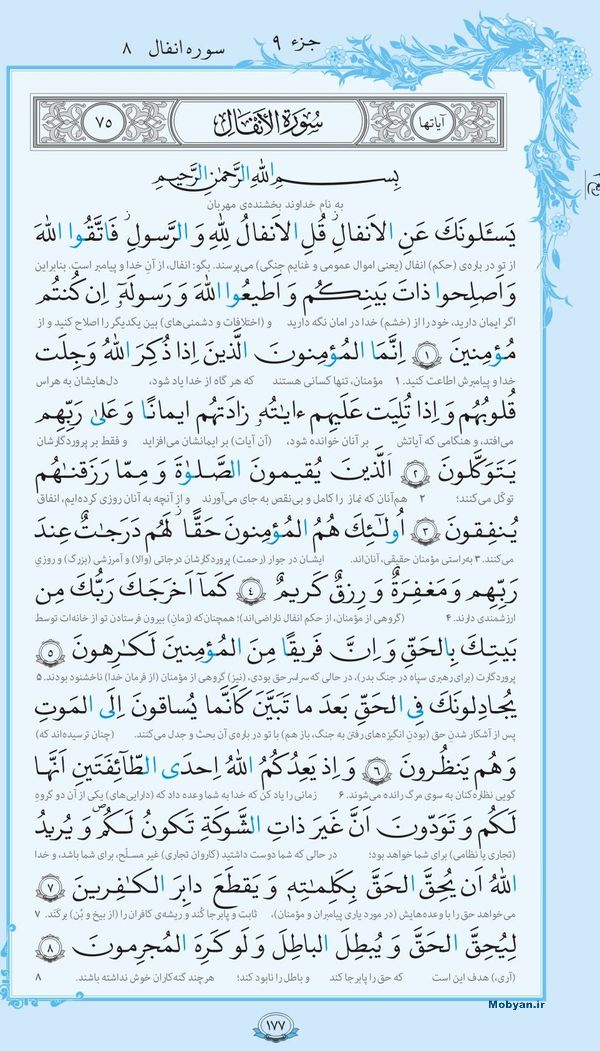 جزء ۹ سوره انفال ۸
آیاتها سُورَةُ الأَنفَال ۷۵
بِسمِ اللهِ الرَّحمٰنِ الرَّحيمِ
به نام خداوند بخشنده‌ی مهربان
يَسـَٔلونَكَ عَنِ الاَنفالِ قُلِ الاَنفالُ لِلّٰهِ وَ الرَّسولِ فَاتَّقُوا اللهَ
از تو در باره‌ی (حکم) انفال (یعنی اموال عمومی و غنایم جنگی) می‌پرسند. بگو: انفال، از آنِ خدا و پیامبر است. بنابراین
وَ اَصلِحوا ذاتَ بَينِكُم وَ اَطيعُوا اللهَ وَ رَسولَهٗٓ اِن كُنتُم
اگر ایمان دارید، خود را از (خشم) خدا در امان نگه دارید و (اختلافات و دشمنی‌های) بین یکدیگر را اصلاح کنید و از
مُؤمِنينَ ۱ اِنَّمَا المُؤمِنونَ الَّذينَ اِذا ذُكِرَ اللهُ وَجِلَت
خدا و پیامبرش اطاعت کنید. ۱ مؤمنان، تنها کسانی هستند که هر گاه از خدا یاد شود، دل‌هایشان به هراس
قُلوبُهُم وَ اِذا تُلِيَت عَلَيهِم ءاياتُهٗ زادَتهُم ايمانًا وَ عَلىٰ رَبِّهِم
می‌افتد، و هنگامی که آیاتش بر آنان خوانده شود، (آن آیات) بر ایمانشان می‌افزاید و فقط بر پروردگارشان
يَتَوَكَّلونَ ۲ اَلَّذينَ يُقيمونَ الصَّلوٰةَ وَ مِمّا رَزَقنٰهُم
توکّل می‌کنند؛ ۲ هم‌آنان که نماز را کامل و بی‌نقص به جای می‌آورند و از آنچه به آنان روزی کرده‌ایم، انفاق
يُنفِقونَ ۳ اُولٰٓئِكَ هُمُ المُؤمِنونَ حَقًّا لَهُم دَرَجاتٌ عِندَ
می‌کنند. ۳ به‌راستی مؤمنان حقیقی، آنان‌اند. ایشان در جوار (رحمت) پروردگارشان درجاتی (والا) و آمرزشی (بزرگ) و روزیِ
رَبِّهِم وَ مَغفِرَةٌ وَ رِزقٌ كَريمٌ ۴ كَمآ اَخرَجَكَ رَبُّكَ مِن
ارزشمندی دارند. ۴ (گروهی از مؤمنان، از حکم انفال ناراضی‌اند)؛ همچنان‌که (زمانِ) بیرون فرستادن تو از خانه‌ات توسط
بَيتِكَ بِالحَقِّ وَ اِنَّ فَريقًا مِنَ المُؤمِنينَ لَكٰرِهونَ ۵
پروردگارت (برای رهبری سپاه در جنگ بدر)، در حالی که سراسر حق بودی، (نیز) گروهی از مؤمنان (از فرمان خدا) ناخشنود بودند. ۵
يُجادِلونَكَ فِي الحَقِّ بَعدَ ما تَبَيَّنَ كَاَنَّما يُساقونَ اِلَى المَوتِ
پس از آشکار شدنِ حق (بودنِ انگیزه‌های رفتن به جنگ، باز هم) با تو در باره‌ی آن بحث و جدل می‌کنند. (چنان ترسیده‌اند که)
وَ هُم يَنظُرونَ ۶ وَ اِذ يَعِدُكُمُ اللهُ اِحدَى الطّآئِفَتَينِ اَنَّها
گویی نظاره‌کنان به سوی مرگ رانده می‌شوند. ۶ زمانی را یاد کن که خدا به شما وعده داد که (دارایی‌های) یکی از آن دو گروهِ
لَكُم وَ تَوَدّونَ اَنَّ غَيرَ ذاتِ الشَّوكَةِ تَكونُ لَكُم وَ يُريدُ
(تجاری یا نظامی) برای شما خواهد بود؛ در حالی که شما دوست داشتید (کاروان تجاری) غیر مسلّح، برای شما باشد، و خدا
اللهُ اَن يُحِقَّ الحَقَّ بِكَلِماتِهٖ وَ يَقطَعَ دابِرَ الكٰفِرينَ ۷
می‌خواهد حق را با وعده‌هایش (در مورد یاری پیامبران و مؤمنان)، ثابت و پابرجا کُند و ریشه‌ی کافران را (از بیخ و بُن) برکَند. ۷
لِيُحِقَّ الحَقَّ وَ يُبطِلَ الباطِلَ وَ لَو كَرِهَ المُجرِمونَ ۸
(آری،) هدف این است که حق را پابرجا کند و باطل را نابود کند؛ هرچند گنه‌کاران خوش نداشته باشند. ۸
Mobyan.ir
۱۷۷